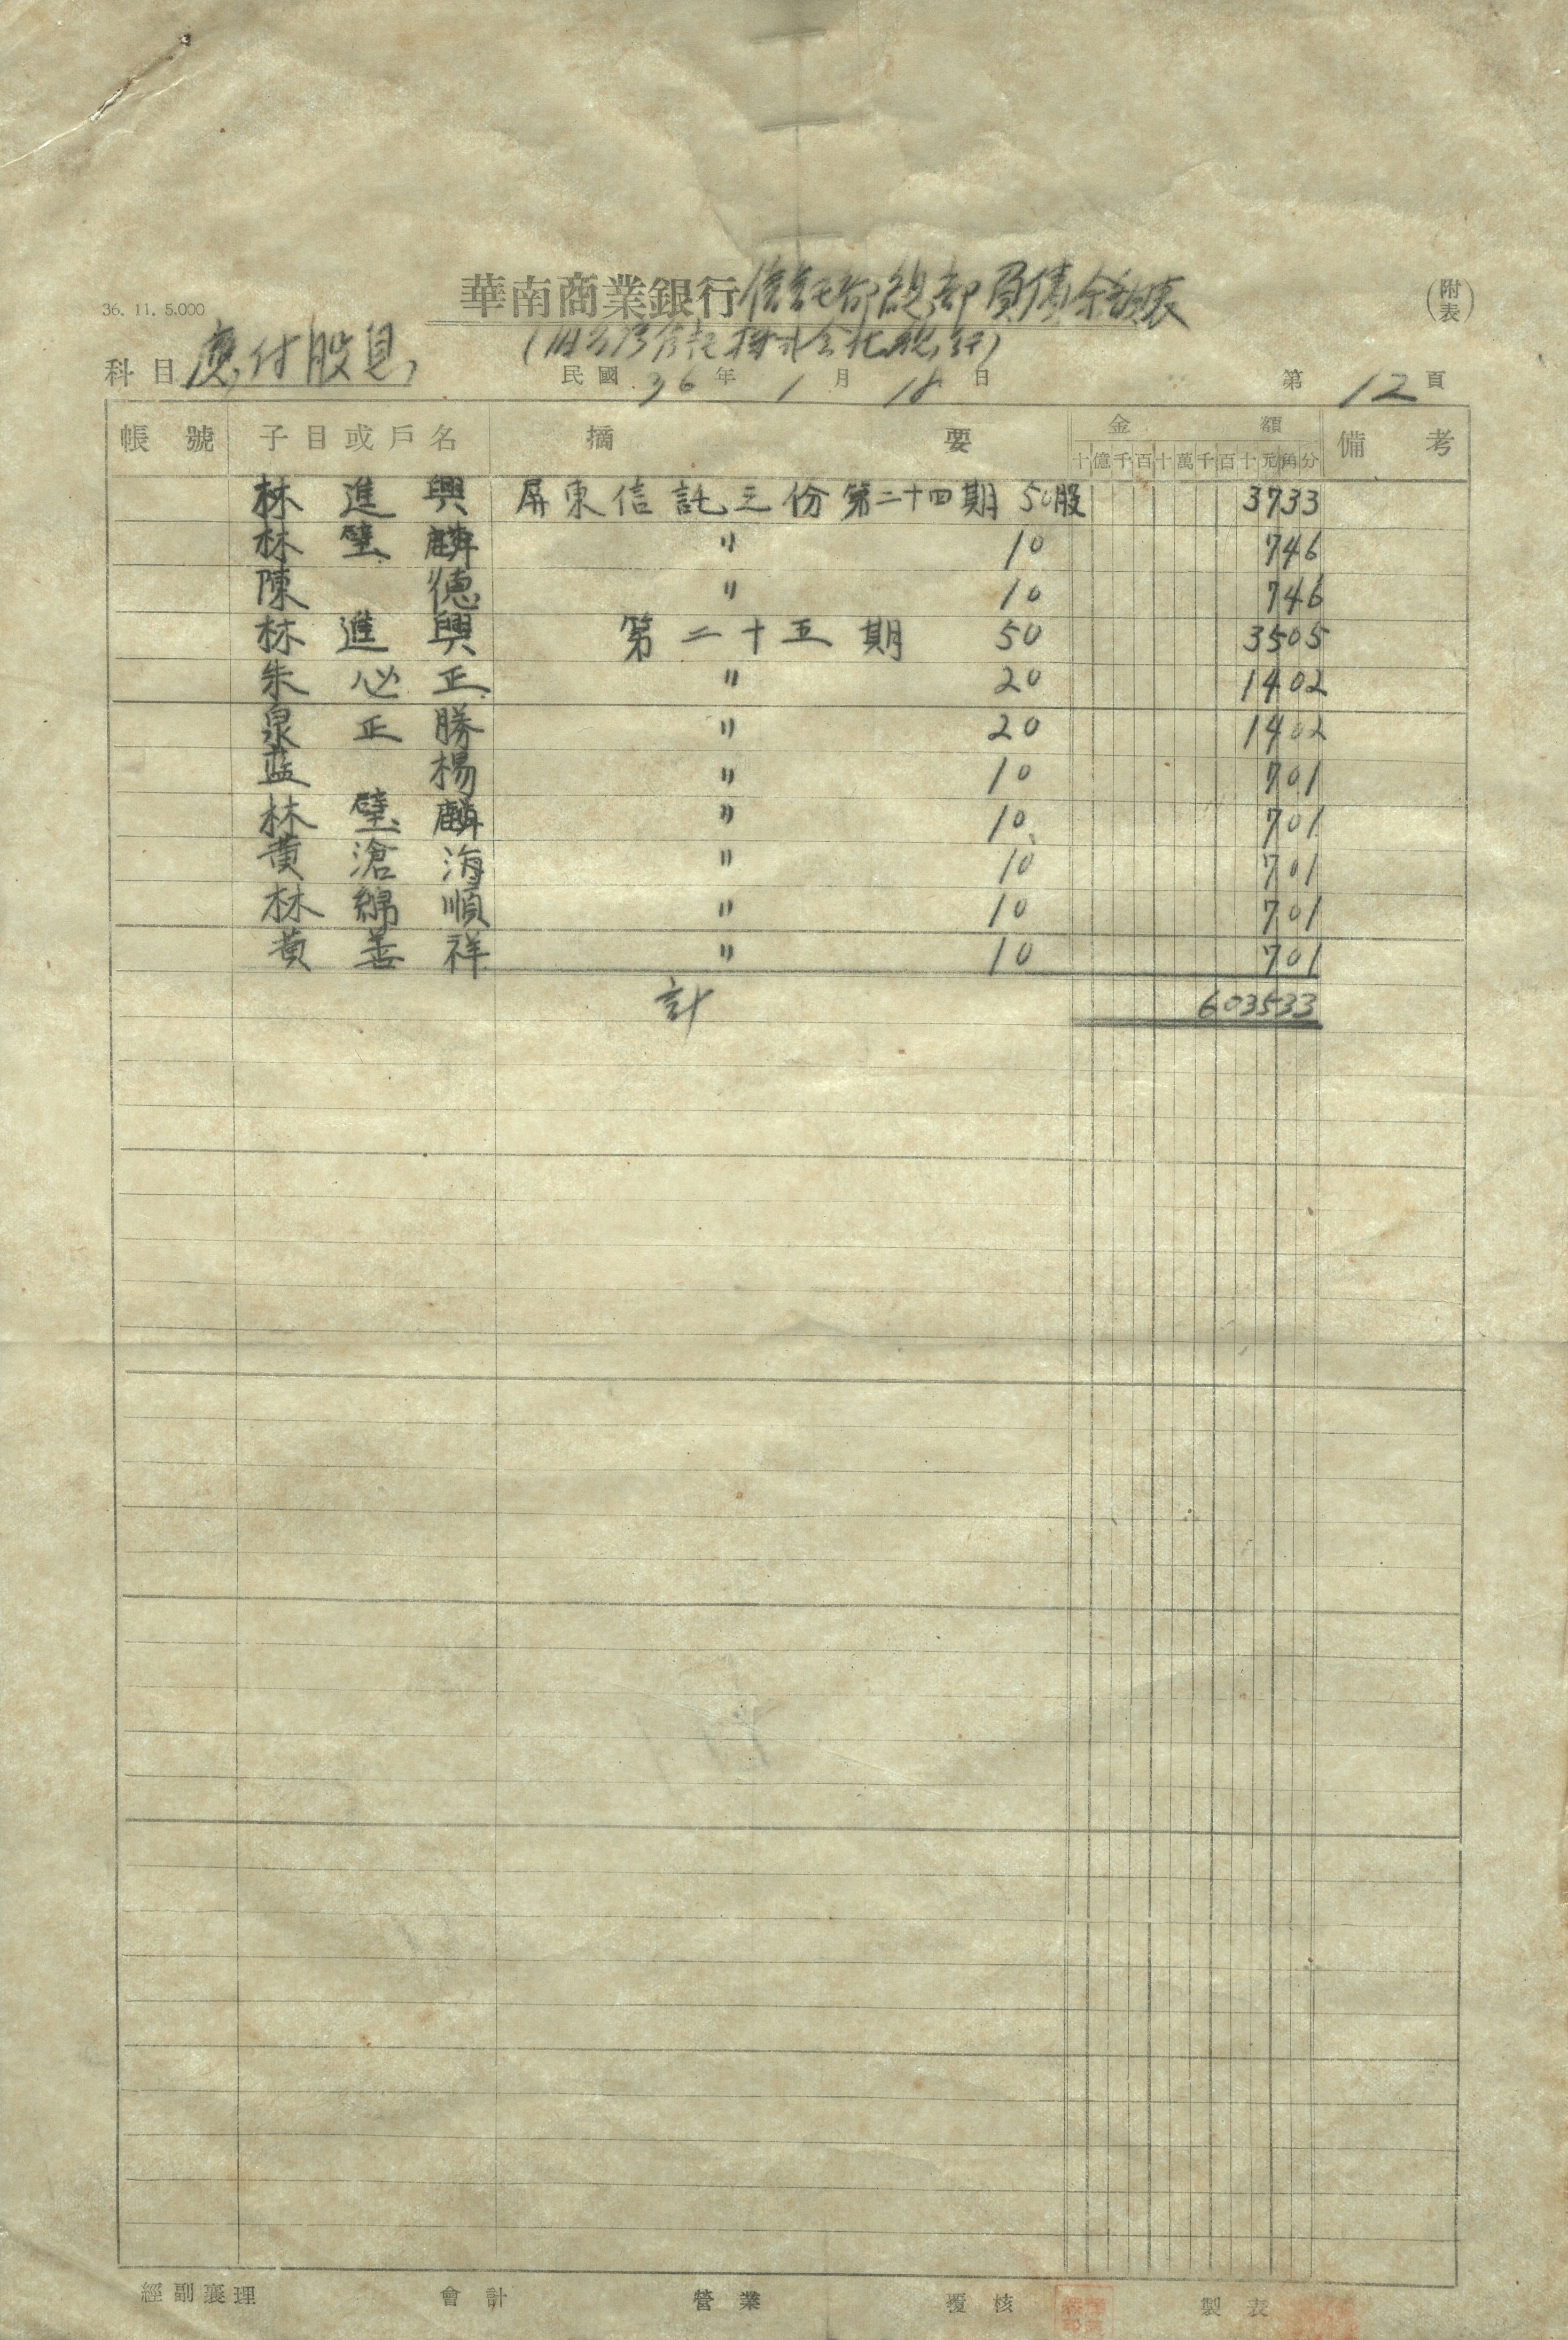 華南商業銀行信託部總部負債余額表
(附表)
36. 11. 5.000
(旧台灣信託株式会社總行)
科目 應付股息
民國 36 年 1 月 18 日
第 12 頁
帳號 子目或戶名 摘要 金額 備考
十億千百十萬千百十元角分
林進興 屏東信託之份第二十四期 50股 3733
林壁麟 〃 10 746
陳德 〃 10 746
林進興 第二十五期 50 3505
朱必正 〃 20 1402
泉正勝 〃 20 1402
藍楊 〃 10 701
林壁麟 〃 10 701
黄滄海 〃 10 701
林綿順 〃 10 701
黄善祥 〃 10 701
計 603533
經副襄理 會計 營業 覆核 製表